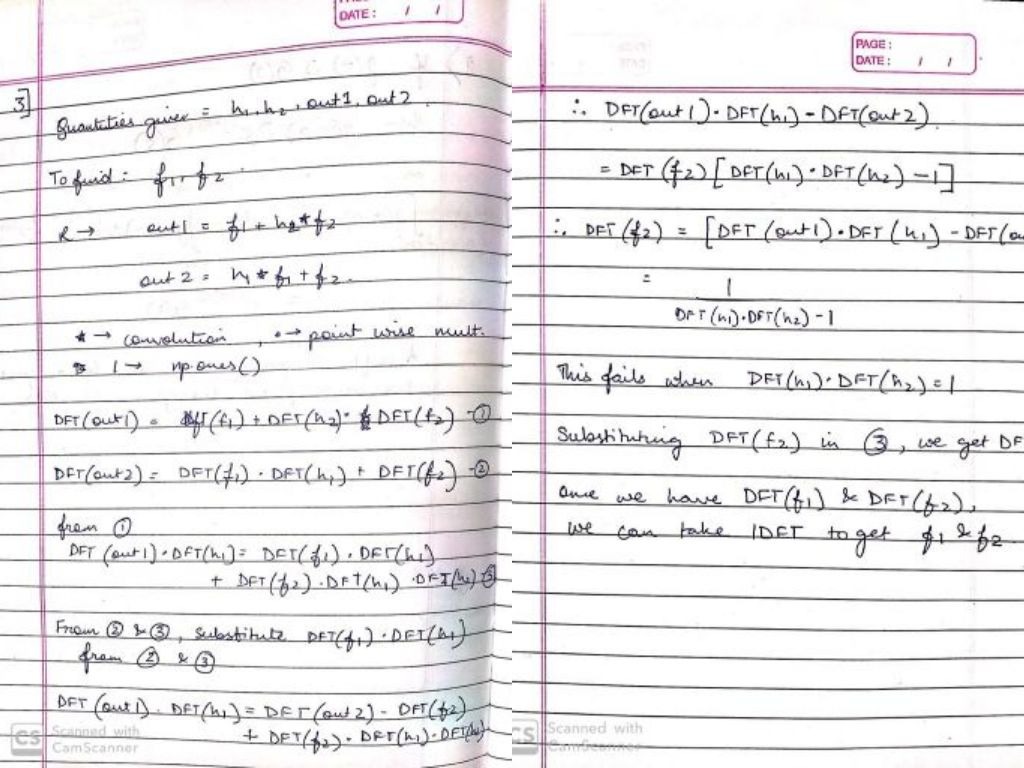 DATE : / /
3]
Quantities given = h1, h2, out1, out2
To find : f1, f2
→ out1 = f1 + h2 * f2
out2 = h1 * f1 + f2
* → convolution , • → point wise mult.
1 → np.ones()
DFT(out1) = (f1) + DFT(h2) · DFT(f2) -①
DFT(out2) = DFT(f1) · DFT(h1) + DFT(f2) -②
from ①
DFT (out1) · DFT(h1) = DFT(f1) · DFT(h1)
+ DFT(f2) · DFT(h1) · DFT(h2) -③
From ② & ③, substitute DFT(f1) · DFT(h1)
from ② & ③
DFT (out1) . DFT(h1) = DFT(out2) - DFT(f2)
+ DFT(f2) · DFT(h1) · DFT(h2)
CS Scanned with
CamScanner
PAGE :
DATE : / /
∴ DFT(out1) · DFT(h1) - DFT(out2)
= DFT (f2) [ DFT(h1) · DFT(h2) - 1]
∴ DFT (f2) = [DFT (out1) · DFT (h1) - DFT(ou
= 1
DFT(h1)·DFT(h2) - 1
This fails when DFT(h1) · DFT(h2) = 1
Substituting DFT(f2) in ③, we get DF
Once we have DFT(f1) & DFT(f2),
we can take IDFT to get f1 & f2
CS Scanned with
CamScanner